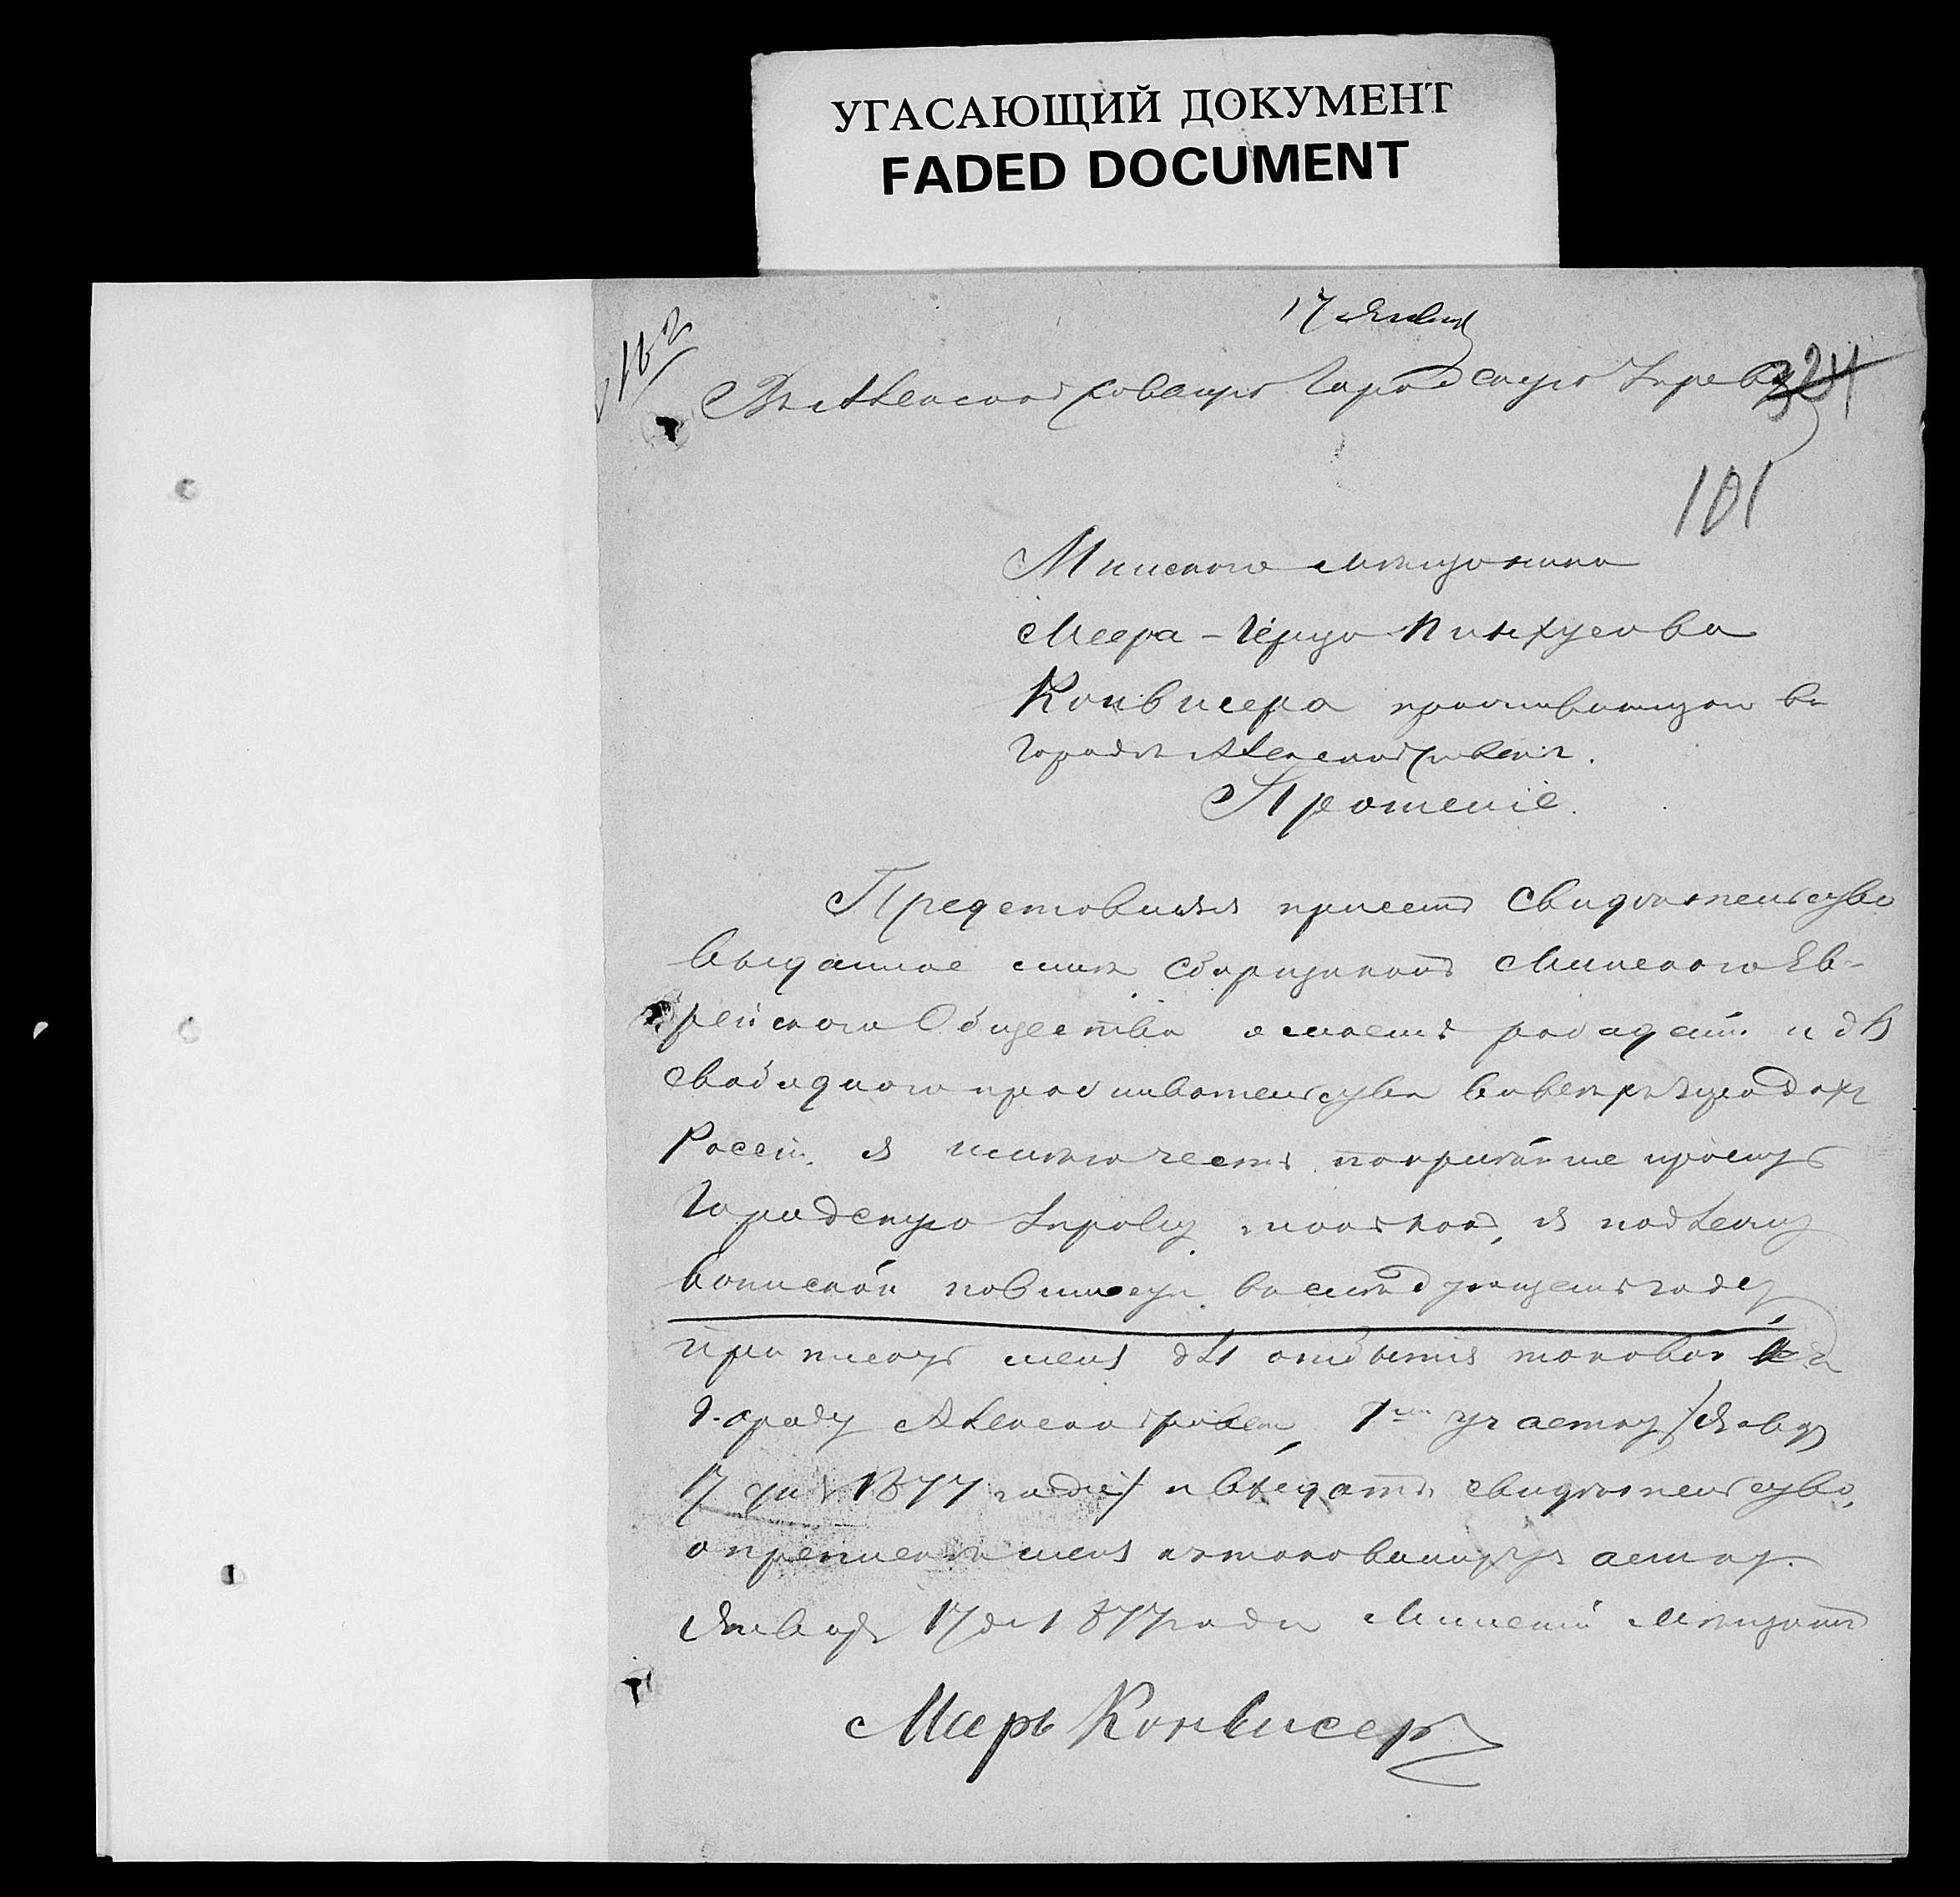 УГАСАЮЩИЙ ДОКУМЕНТ
FADED DOCUMENT
17 Январ
162
Въ Александровскую Городскую Управу
324
101
Минскаго мѣщанина
Меера-Герцо Пинхусова
Конвисера проживающаго въ
городѣ Александровскѣ.
Прошеніе.
Представляя присемъ свидѣтельсуво
выданное мнѣ Сборщикомъ Минскаго Ев-
рейскаго Общества о моемъ и для
свободнаго
Россіи, я имѣю честь покорнѣйше просить
Городскую Управу, я подлежу
воинской повинности въ годѣ
приписать меня для отбытія таковой
городу Александровску, 1му участку / Январ
17 дня 1877 годе / и выдать свидѣтельсуво,
о припискѣ меня къ таковому участку.
Январ 17 дн 1877 года Минскій мѣщанинъ
Маеръ Конвисер